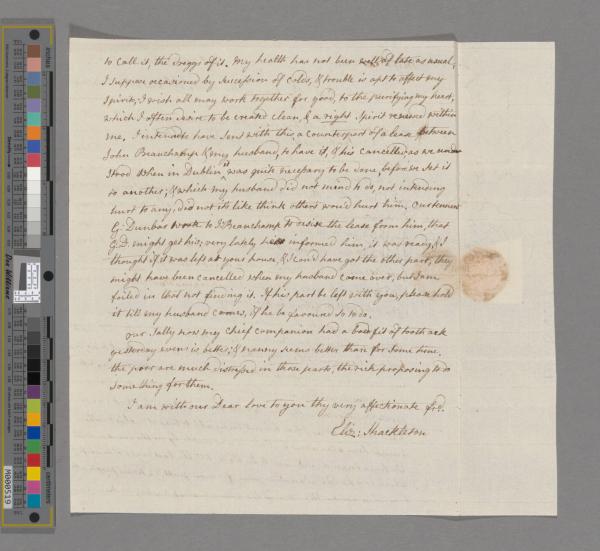 to call it, the dreggs of it. My health has not been well of late as usual,
I suppose occasioned by sucession of colds, & trouble is apt to affect my
spirits; I wish all may work together for good, to the purifying my heart,
which I often desire to be created clean, & a right spirit renewed within
me, I intended to have sent with this a counterpart of a lease between
John Beauchamp & my husband, to have it, & his cancelled, as we under
stood when in Dublin, it was quite necessary to be done, before we set it
to another; & which my husband did not mind to do, not intending
hurt to any, did not like think others would hurt him.
G: Dunbar wrote to J: Beauchamp to desire the lease from him, that
G.D. might get his; very lately he informed him, it was ready, & I
thought if it was left at your house, & I could have got the other part, they
might have been cancelled when my husband come over, but I am
foiled in that not finding it. If his part be left with you, please hold
it till my husband comes, if he be favoured so to do.
our Sally now my chief companion had a bad fit of tooth ack
yesterday even: is better; & nanny seems better than for some time.
the poor are much distressed in these parts, the rich proposing to do
something for them.
I am with our Dear love to you thy very affectionate frd.
Eliz: Shackleton
inches
centimetres
M000519